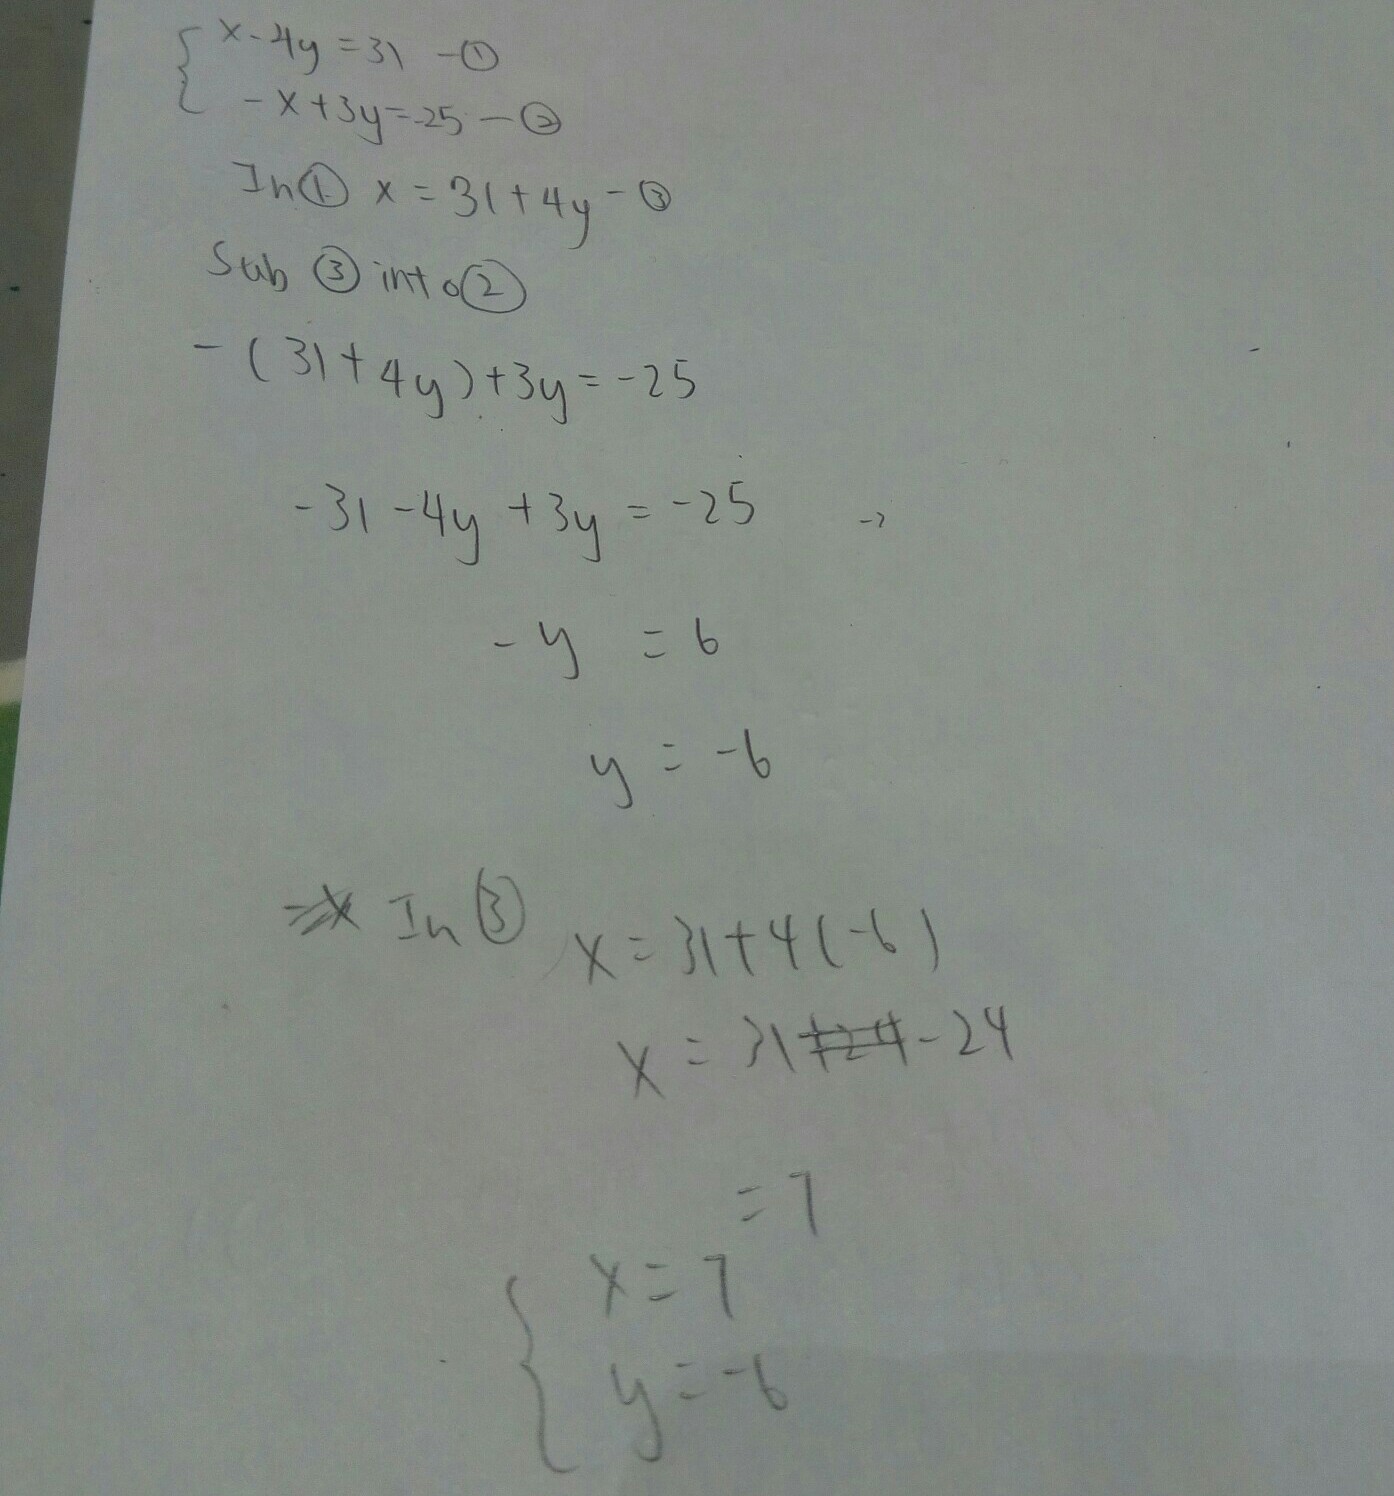 x-4y=31 -①
-x+3y=-25-②
In① x=31+4y-③
Sub ③ into②
-(31+4y)+3y=-25
-31-4y+3y=-25
-y=6
y=-6
In ③ x=31+4(-6)
x=31+24-24
=7
x=7
y=-6